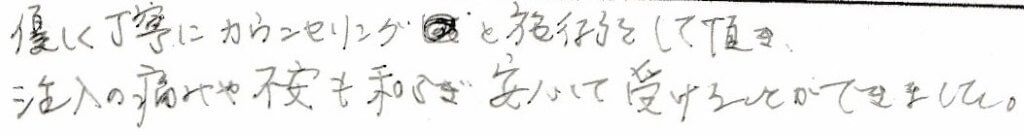 優しく丁寧にカウンセリングと施術をして頂き、
注入の痛みや不安も和らぎ安心して受けることができました。